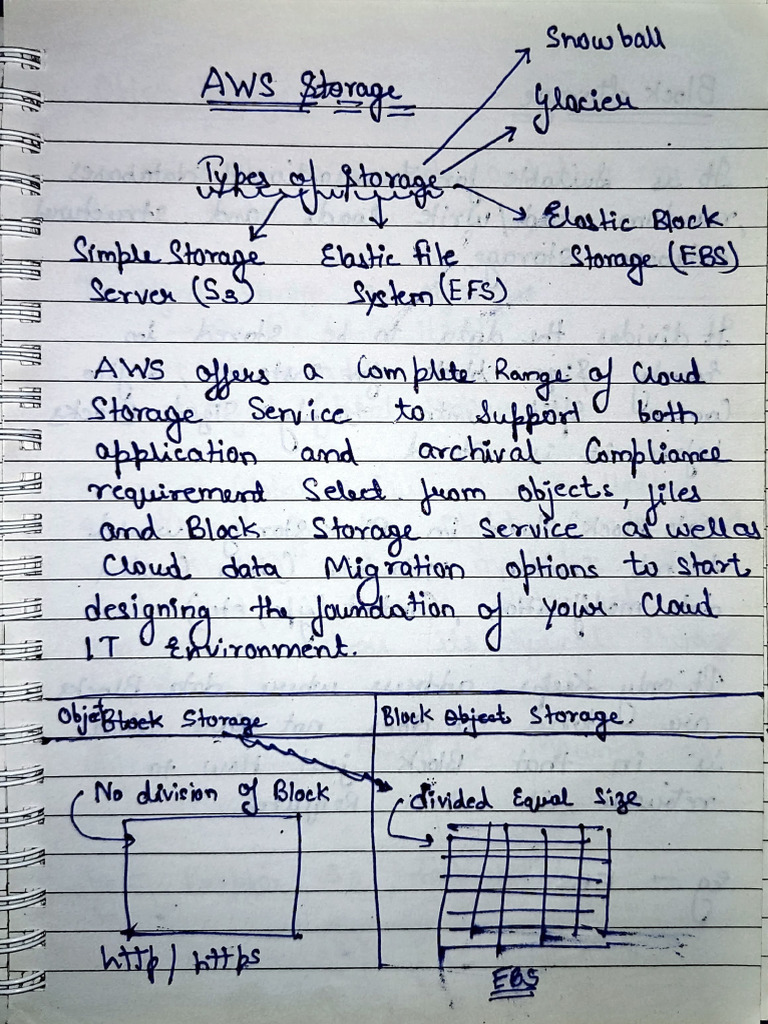 Snowball
AWS Storage
Glacier
Types of Storage
Elastic Block
Storage (EBS)
Simple Storage
Server (S3)
Elastic file
System (EFS)
AWS offers a Complete Range of Cloud
Storage Service to Support both
application and archival Compliance
requirement Select from objects, files
and Block Storage Service as well as
Cloud data Migration options to start
designing the foundation of your Cloud
IT Environment.
Objet Block Storage
Block Object Storage.
No division of Block
divided Equal Size
http / https
EBS